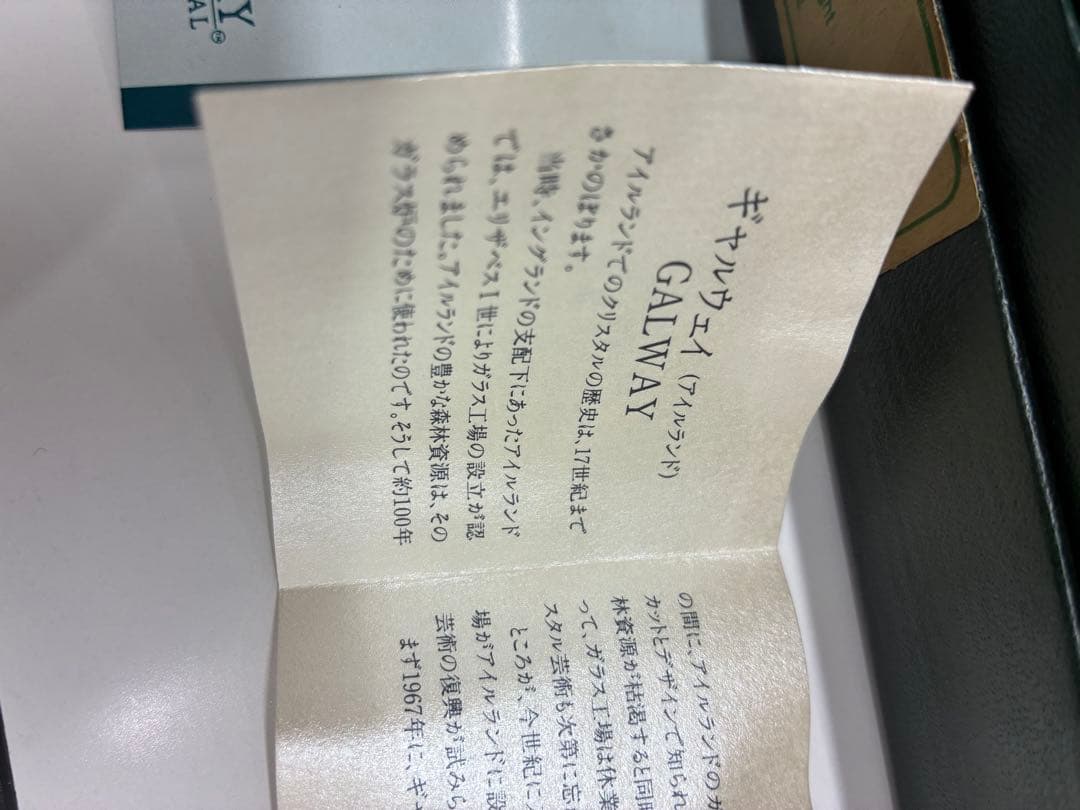 ギャルウェイ（アイルランド）
GALWAY
アイルランドでのクリスタルの歴史は、17世紀まで
さかのぼります。
当時、イングランドの支配下にあったアイルランド
では、エリザベスⅠ世によりガラス工場の設立が認
められました。アイルランドの豊かな森林資源は、その
ガラス炉のために使われたのです。そうして約100年
の間に、アイルランドのガ
カットとデザインで知られ
林資源が枯渇すると同時
って、ガラス工場は休業
スタル芸術も次第に忘
ところが、今世紀に
場がアイルランドに設
芸術の復興が試みら
まず1967年に、ギャ